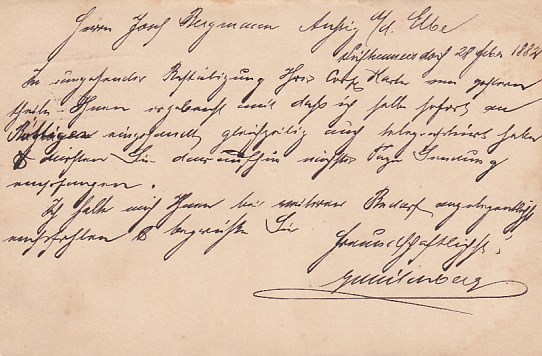 Herrn Josef Bergmann Aussig a/d. Elbe
28 Feber 1882
In umgehender Bestätigung Ihrer Corr. Karte von gestern
theile Ihnen ergebenst mit daß ich selbe sofort an
eingesandt gleichzeitig auch telegraphirt habe
& dürften Sie daraufhin nächster Tage Sendung
empfangen.
Ich halte mich Ihnen bei weiterem Bedarf angelegentlichst
empfohlen & begrüße Sie
Freundschaftlichst!